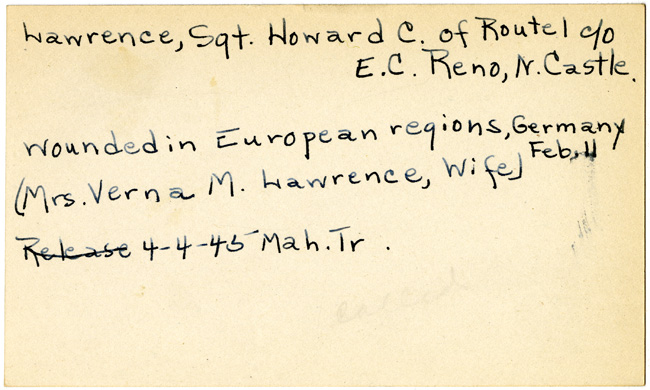 Lawrence, Sgt. Howard C. of Route 1 c/o
E.C. Reno, N. Castle.
Wounded in European regions, Germany
Feb. 11
(Mrs. Verna M. Lawrence, Wife)
Release 4-4-45 Mah. Tr.